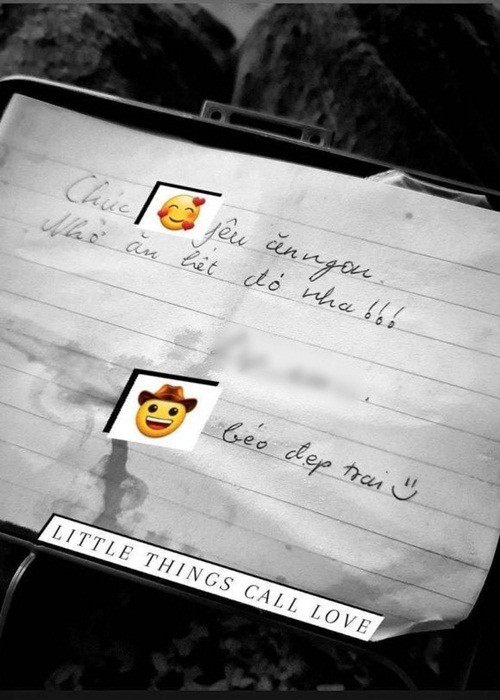 Chúc yêu ăn ngon.
Nhớ ăn hết đó nha !!!
béo đẹp trai
LITTLE THINGS CALL LOVE